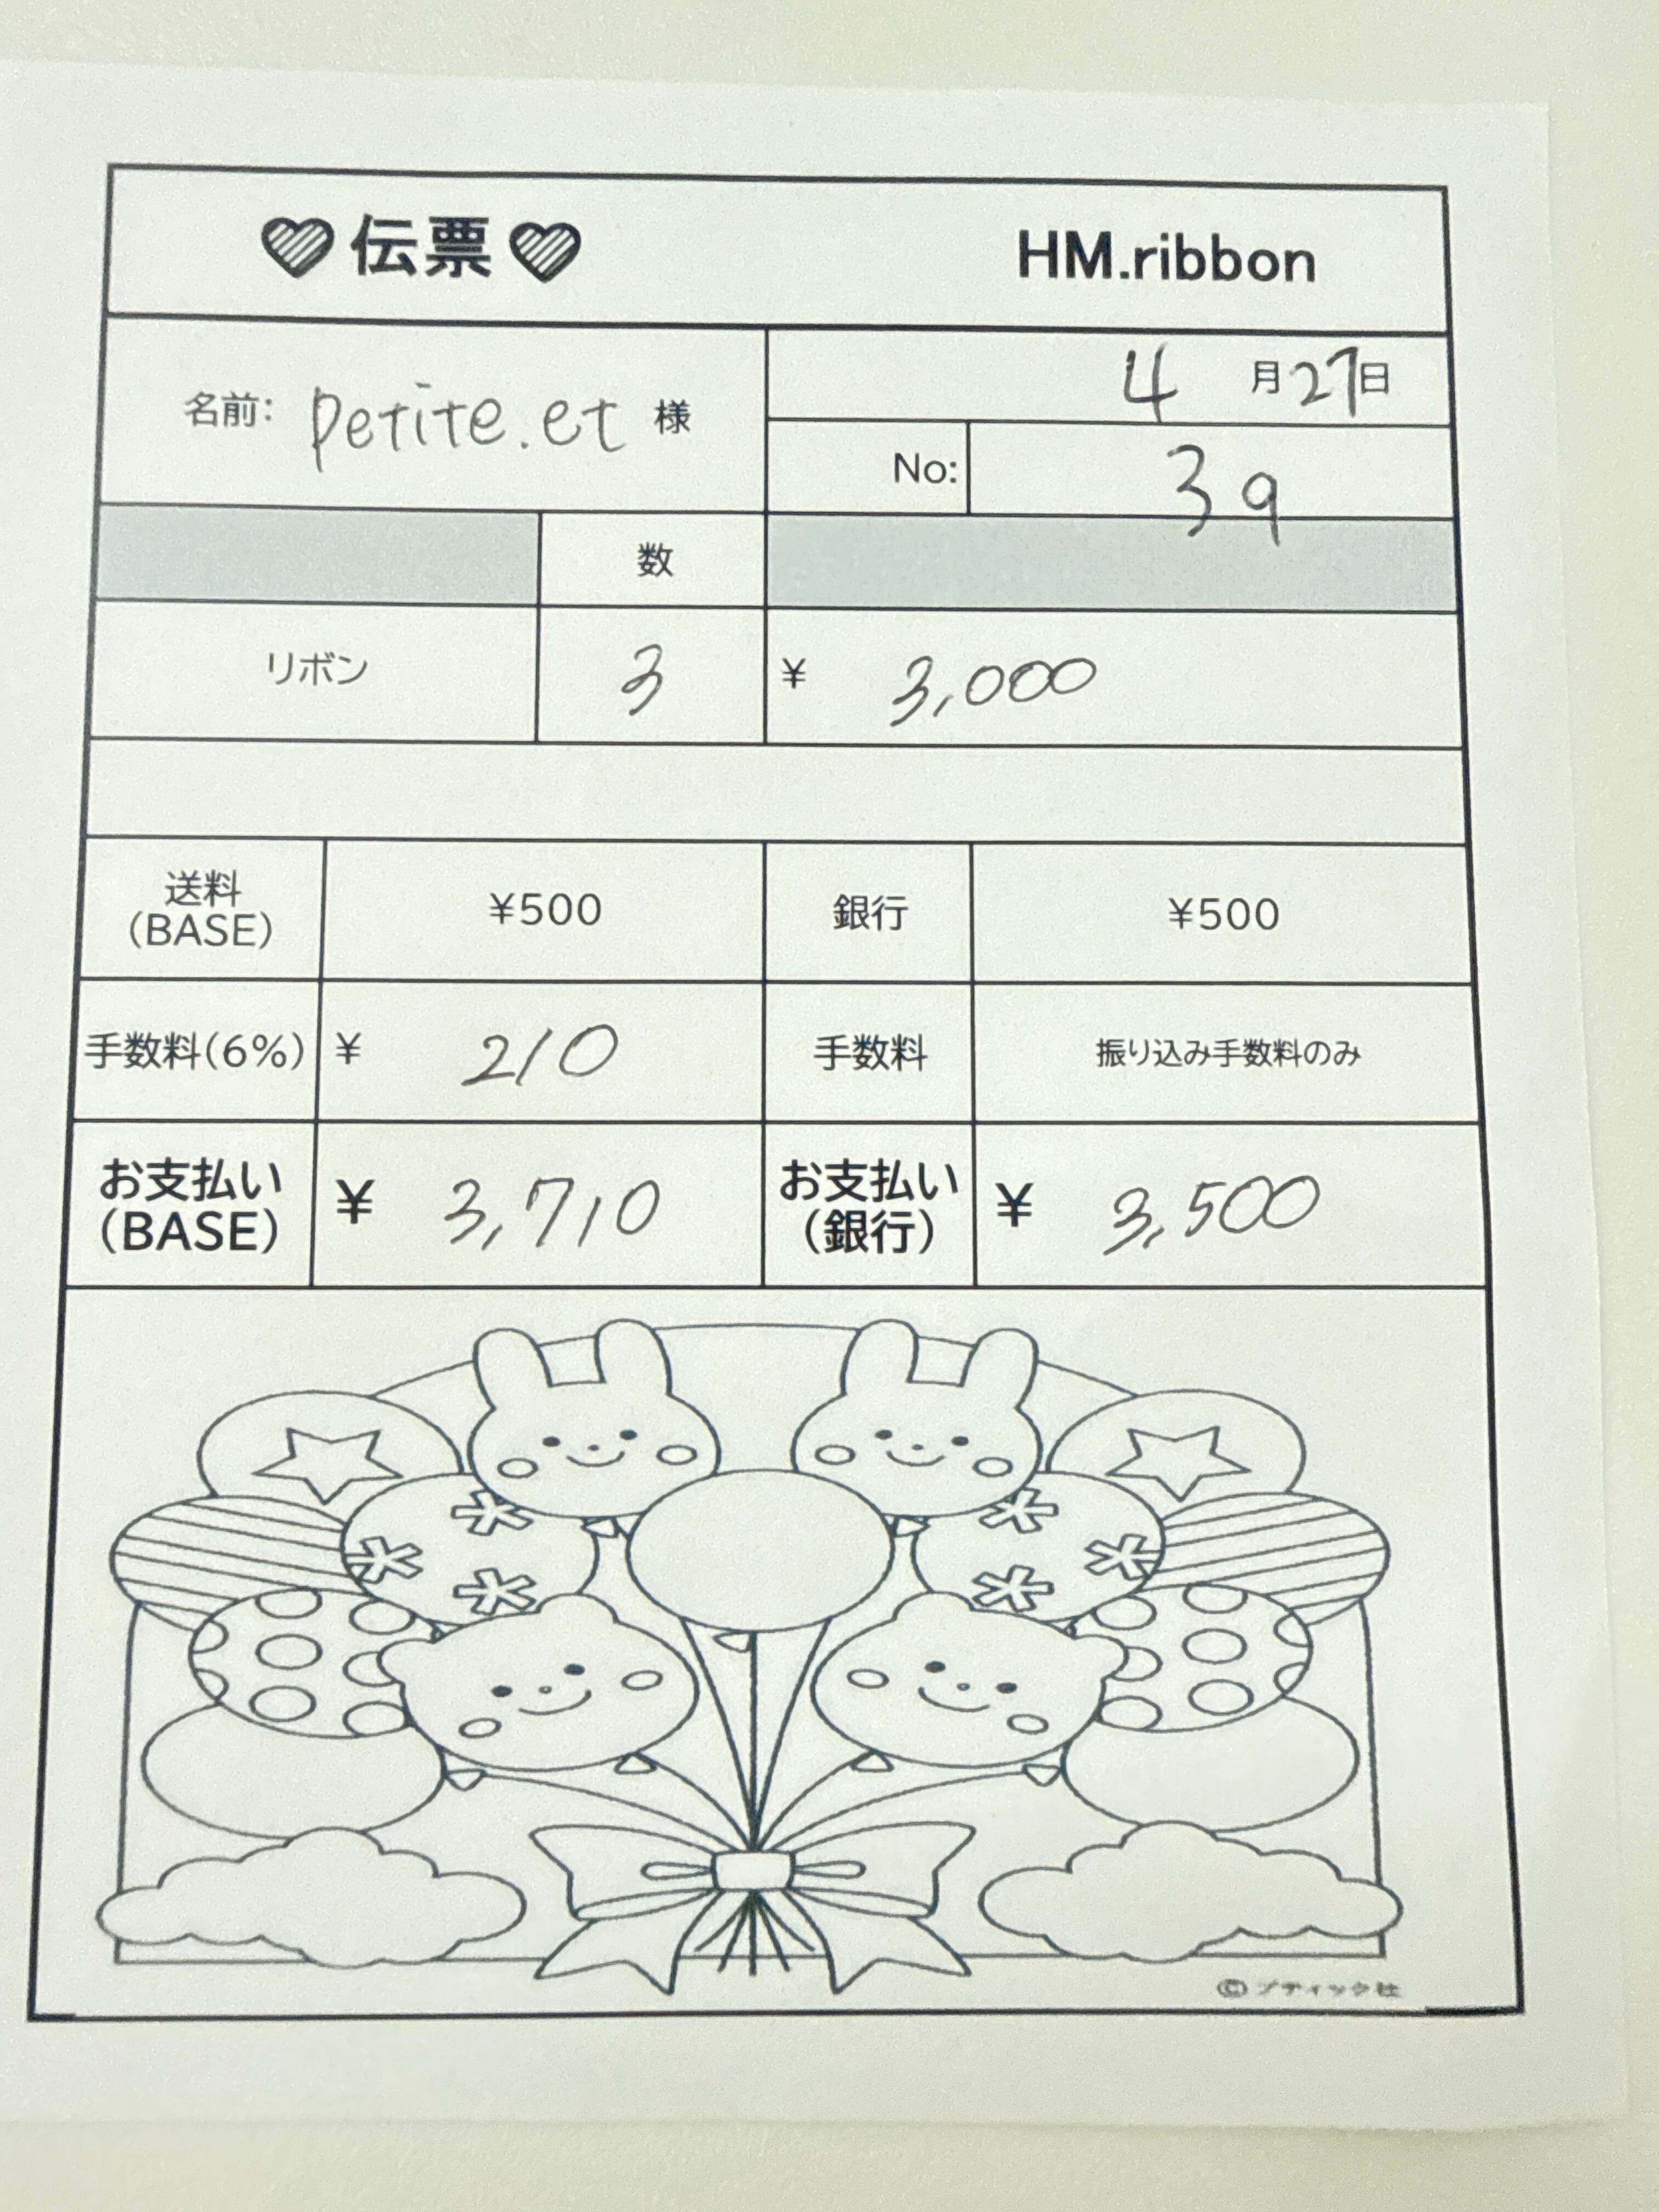 伝票 HM.ribbon
名前: petite.et 様
4月27日
No: 39
数
リボン 3 ¥ 3,000
送料(BASE) ¥500 銀行 ¥500
手数料(6%) ¥ 210 手数料 振り込み手数料のみ
お支払い(BASE) ¥ 3,710 お支払い(銀行) ¥ 3,500
©ブティック社